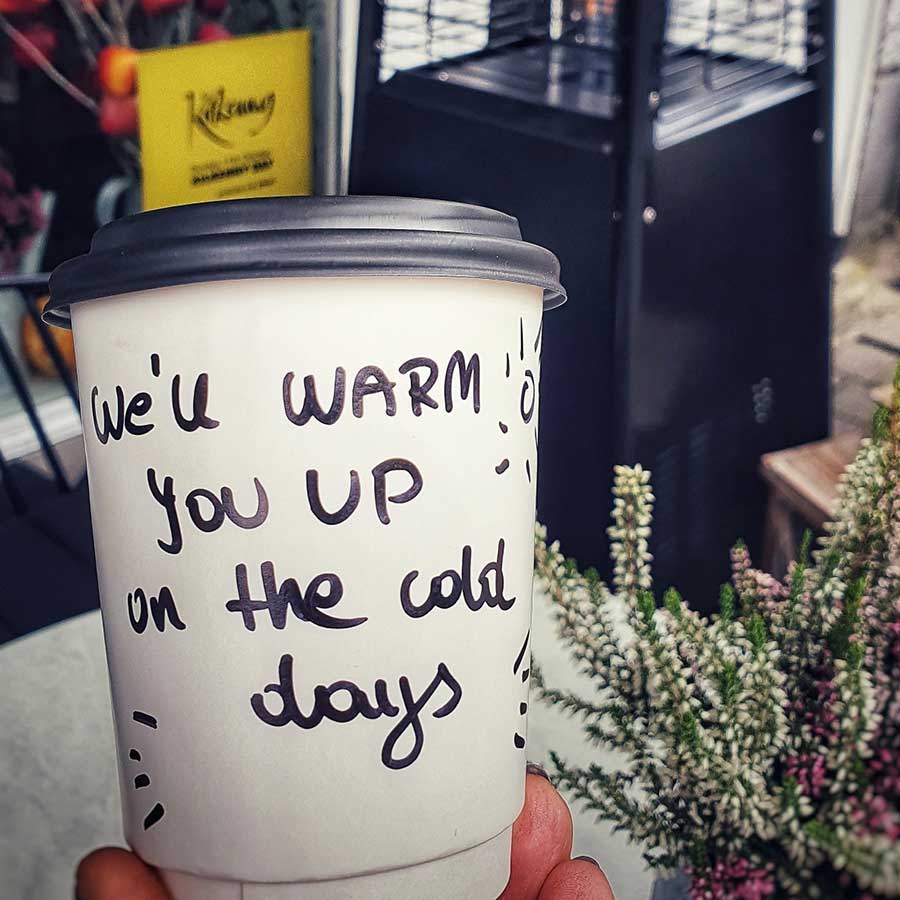 Kilkenny
We'll WARM
you UP
on the cold
days